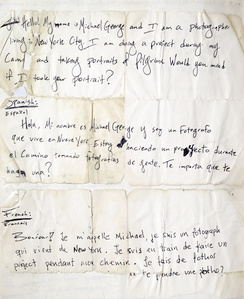 Hello! My name is Michael George and I am a photographer
living in New York City. I am doing a project during my
Camino and taking portraits of pilgrims. Would you mind
if I took your portrait?
Spanish:
Español
Hola, Mi nombre es Michael George y soy un fotografo
que vive en Nueva York. Estoy haciendo un proyecto durante
el Camino tomando fotografias de gente. Te importa que te
haga una?
French:
Français
Bonjour! Je m'appelle Michael, je suis un fotograph
qui vient de New York. Je suis en train de faire un
project pendant mon chemise. Je fais de fothos
te prendre une photo?